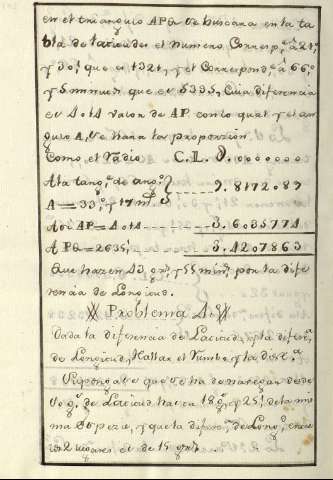 en el triangulo APQ se buscara en la ta
bla de latitudes el numero Corresp.e á 21º
y 30' que es 1321, y el Correspond.e á 66º
y 5 minut que es 5335, Cuia diferencia
es 4014 valor de AP con lo qual y el an
gulo A, se hara la proporsión
Como el Radio C. L. 0.0000000
A la tang.e de ang.o
A = 33º, y 17 m.s 9.8172089
Asi AP = 4014 3.6035774
A PQ = 2635, 3.4207863
Que hazen 43 gr.s y 55 min.s por la dife
rencia de Longitud.
Problema 4º
Dada la diferencia de Latitud, y la diferen.a
de Longitud, Hallar el Rumbo, y la dist.a
Supongase que se ha de navegar desde
g.s de Latitud hacia 18 g.s y 25' de la mis
ma Especie, y que la diferen.a de Long.d entre
los 2 lugares es de 15 gr.s